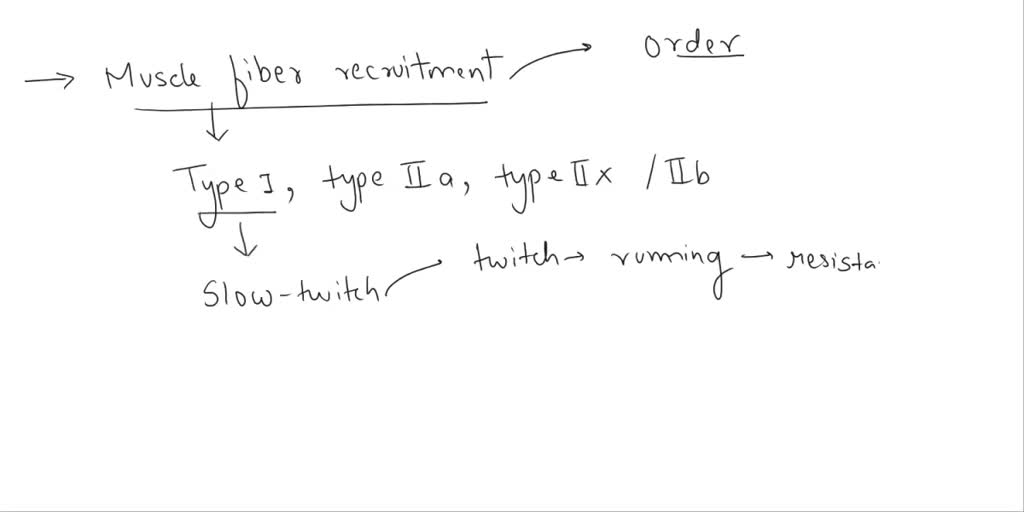 → Muscle fiber recruitment → order
Type I, type IIa, type IIx / IIb
Slow-twitch twitch → running → resista